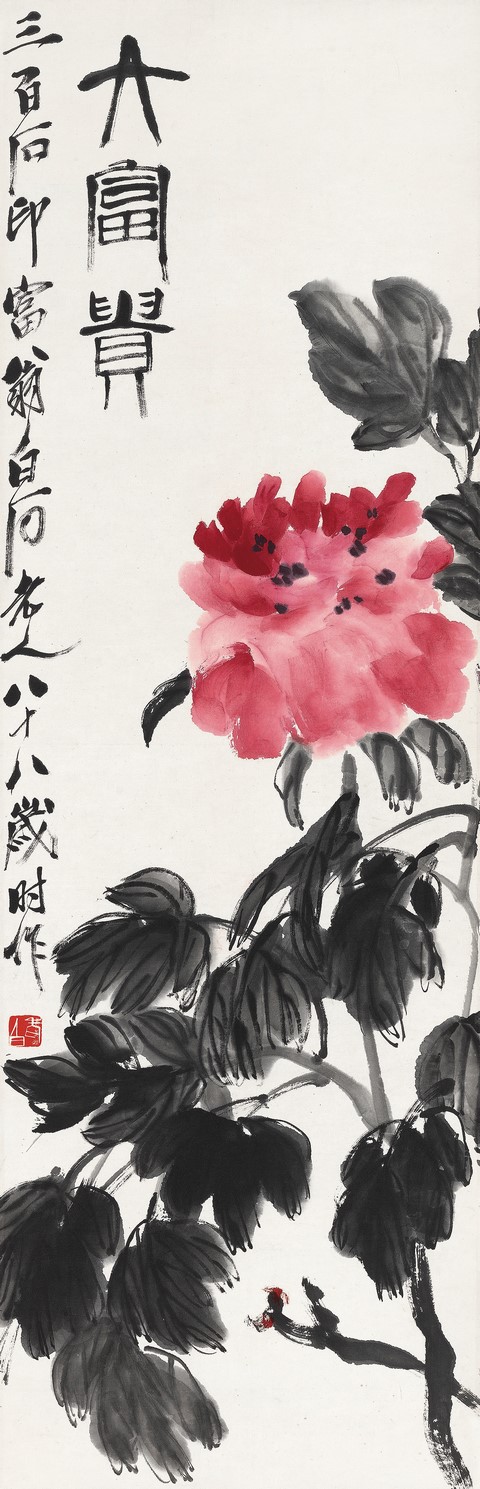 大富貴
三百石印富翁白石老人八十八歲时作